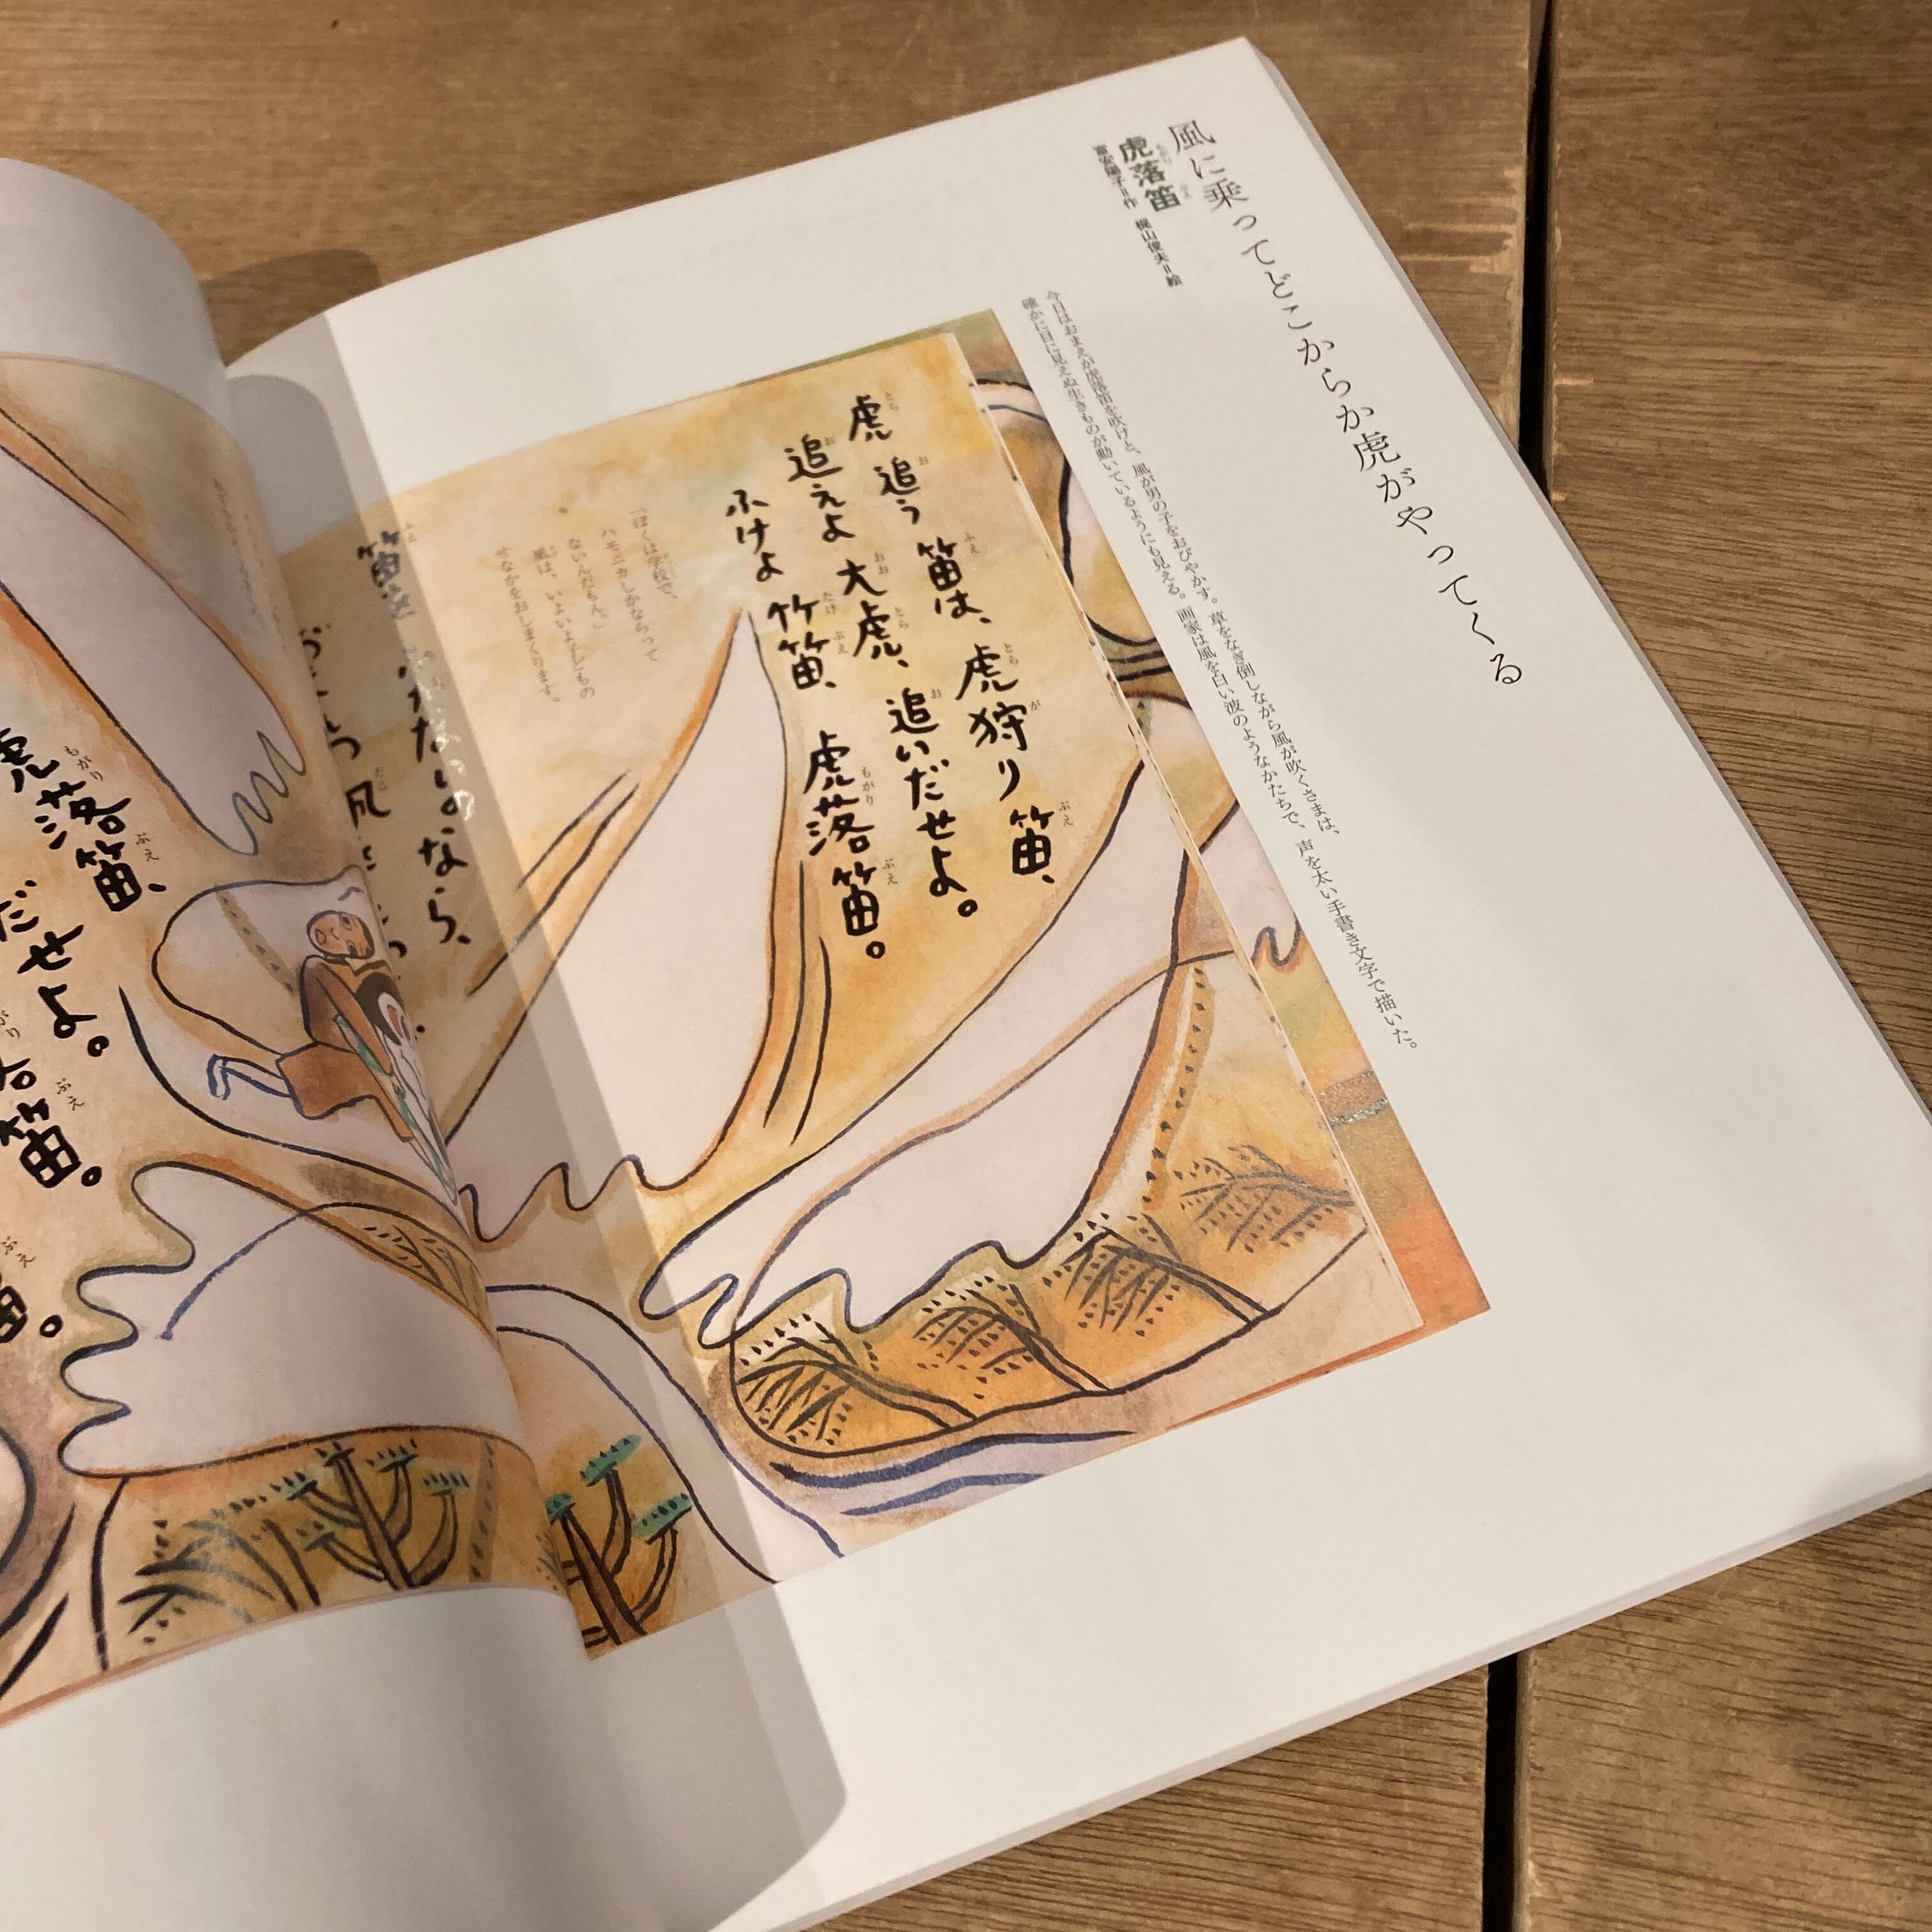 風に乗ってどこからか虎がやってくる
虎落笛
富安陽子=作 梶山俊夫=絵
今日はおまえが虎落笛を吹けと、風が男の子をおびやかす。草をなぎ倒しながら風が吹くさまは、
確かに目に見えぬ生きものが動いているようにも見える。画家は風を白い波のようなかたちで、声を太い手書き文字で描いた。
虎追う笛は、虎狩り笛、
追えよ大虎、追いだせよ。
ふけよ竹笛、虎落笛。
「ぼくは学校で、
ハモニカしかならって
ないんだもん。」
風は、いよいよ子どもの
せなかをおしまくります。
なら、
虎落笛、
だせよ。
笛。